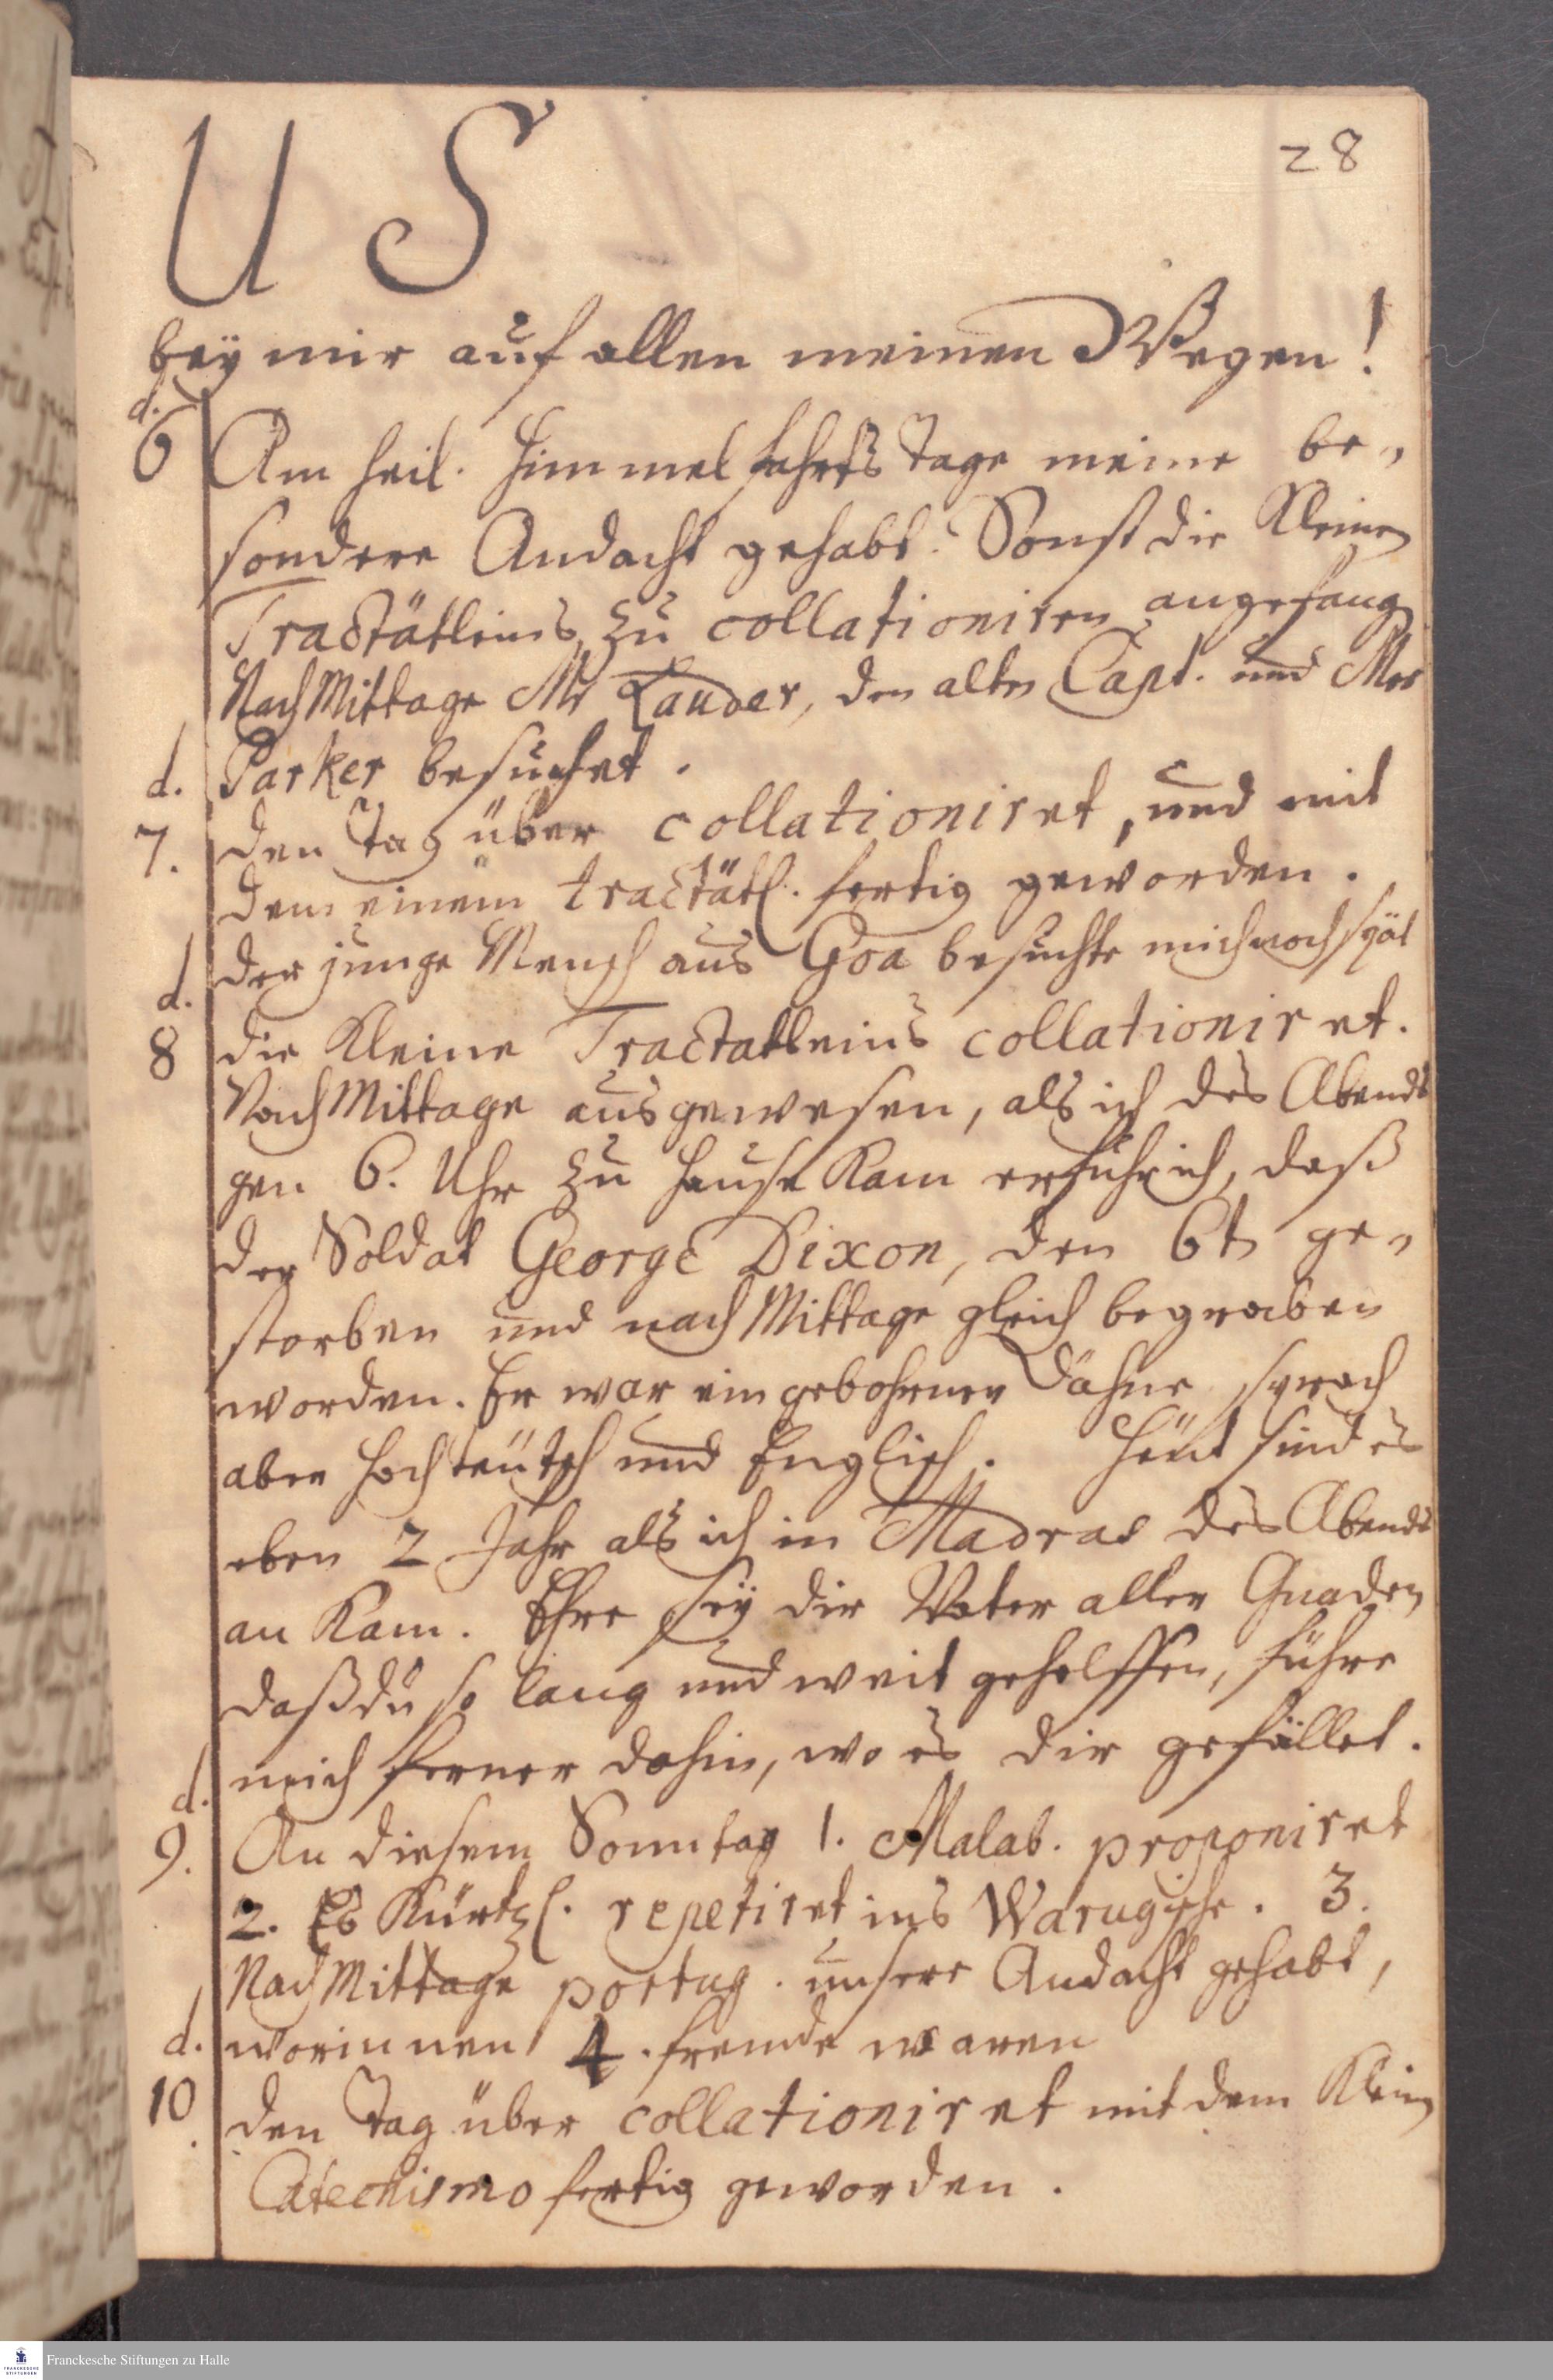 28
U S
bey mir auf allen meinen Wegen!
d.
6 Am heil. Himmelfahrts Tage meine be-
sondere Andacht gehabt. Sonst die Kleinen
Tractätleins zu collationiren angefang
NachMittage Mr Lauder, den alten Capt. und Mrs
Parker besuchet.
d.
7. den Tag über collationiret, und mit
dem einem tractätl. fertig geworden.
der junge Mensch aus Goa besuchte mich noch spät
d.
8 die Kleine Tractatleins collationiret.
NachMittage ausgewesen, als ich des Abends
gen 6. Uhr zu Hause Kam erfuhr ich, daß
der Soldat George Dixon, den 6t ge-
storben und nachMittage gleich begraben
worden. Er war ein gebohrner Dähne sprach
aber hochteütsch und Englisch. Heüt sind es
eben 2 Jahr als ich in Madras des Abends
an Kam. Ehre sey dir Vater aller Gnaden
daß du so lang und weit geholffen, führe
mich ferner dahin, wo es dir gefället.
d.
9. An diesem Sonntag 1. Malab. proponiret
2. Es Kürtzl. repetiret ins Warugische. 3.
NachMittage portug. unsere Andacht gehabt,
worinnen 4. fremde waren
d.
10. den Tag über collationiret mit dem Klein
Catechismo fertig geworden.
Franckesche Stiftungen zu Halle